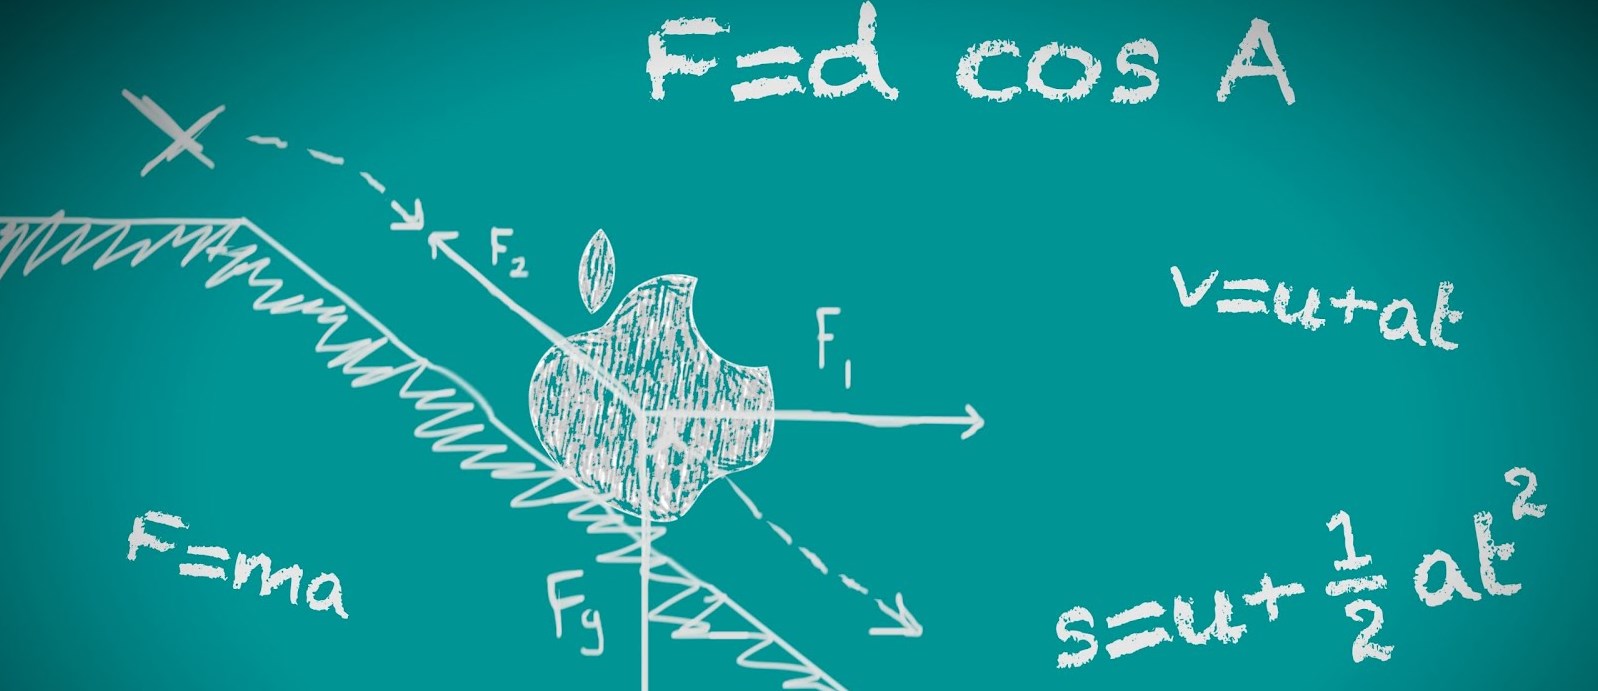 F=d cos A
F₂
F₁
v=u+at
F=ma
Fg
s=u+½at²